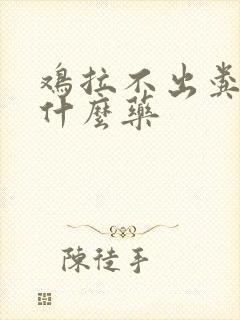 鸡拉不出粪
什麼藥
陳徒手